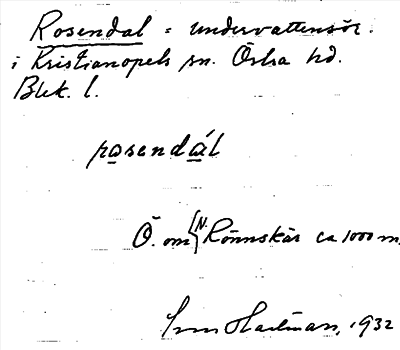 Rosendal = undervattensör.
i Kristianopels sn. Östra hd.
Blek. l.
rosendál
Ö. om N. Rönnskär ca 1000 m.
Hartman, 1932